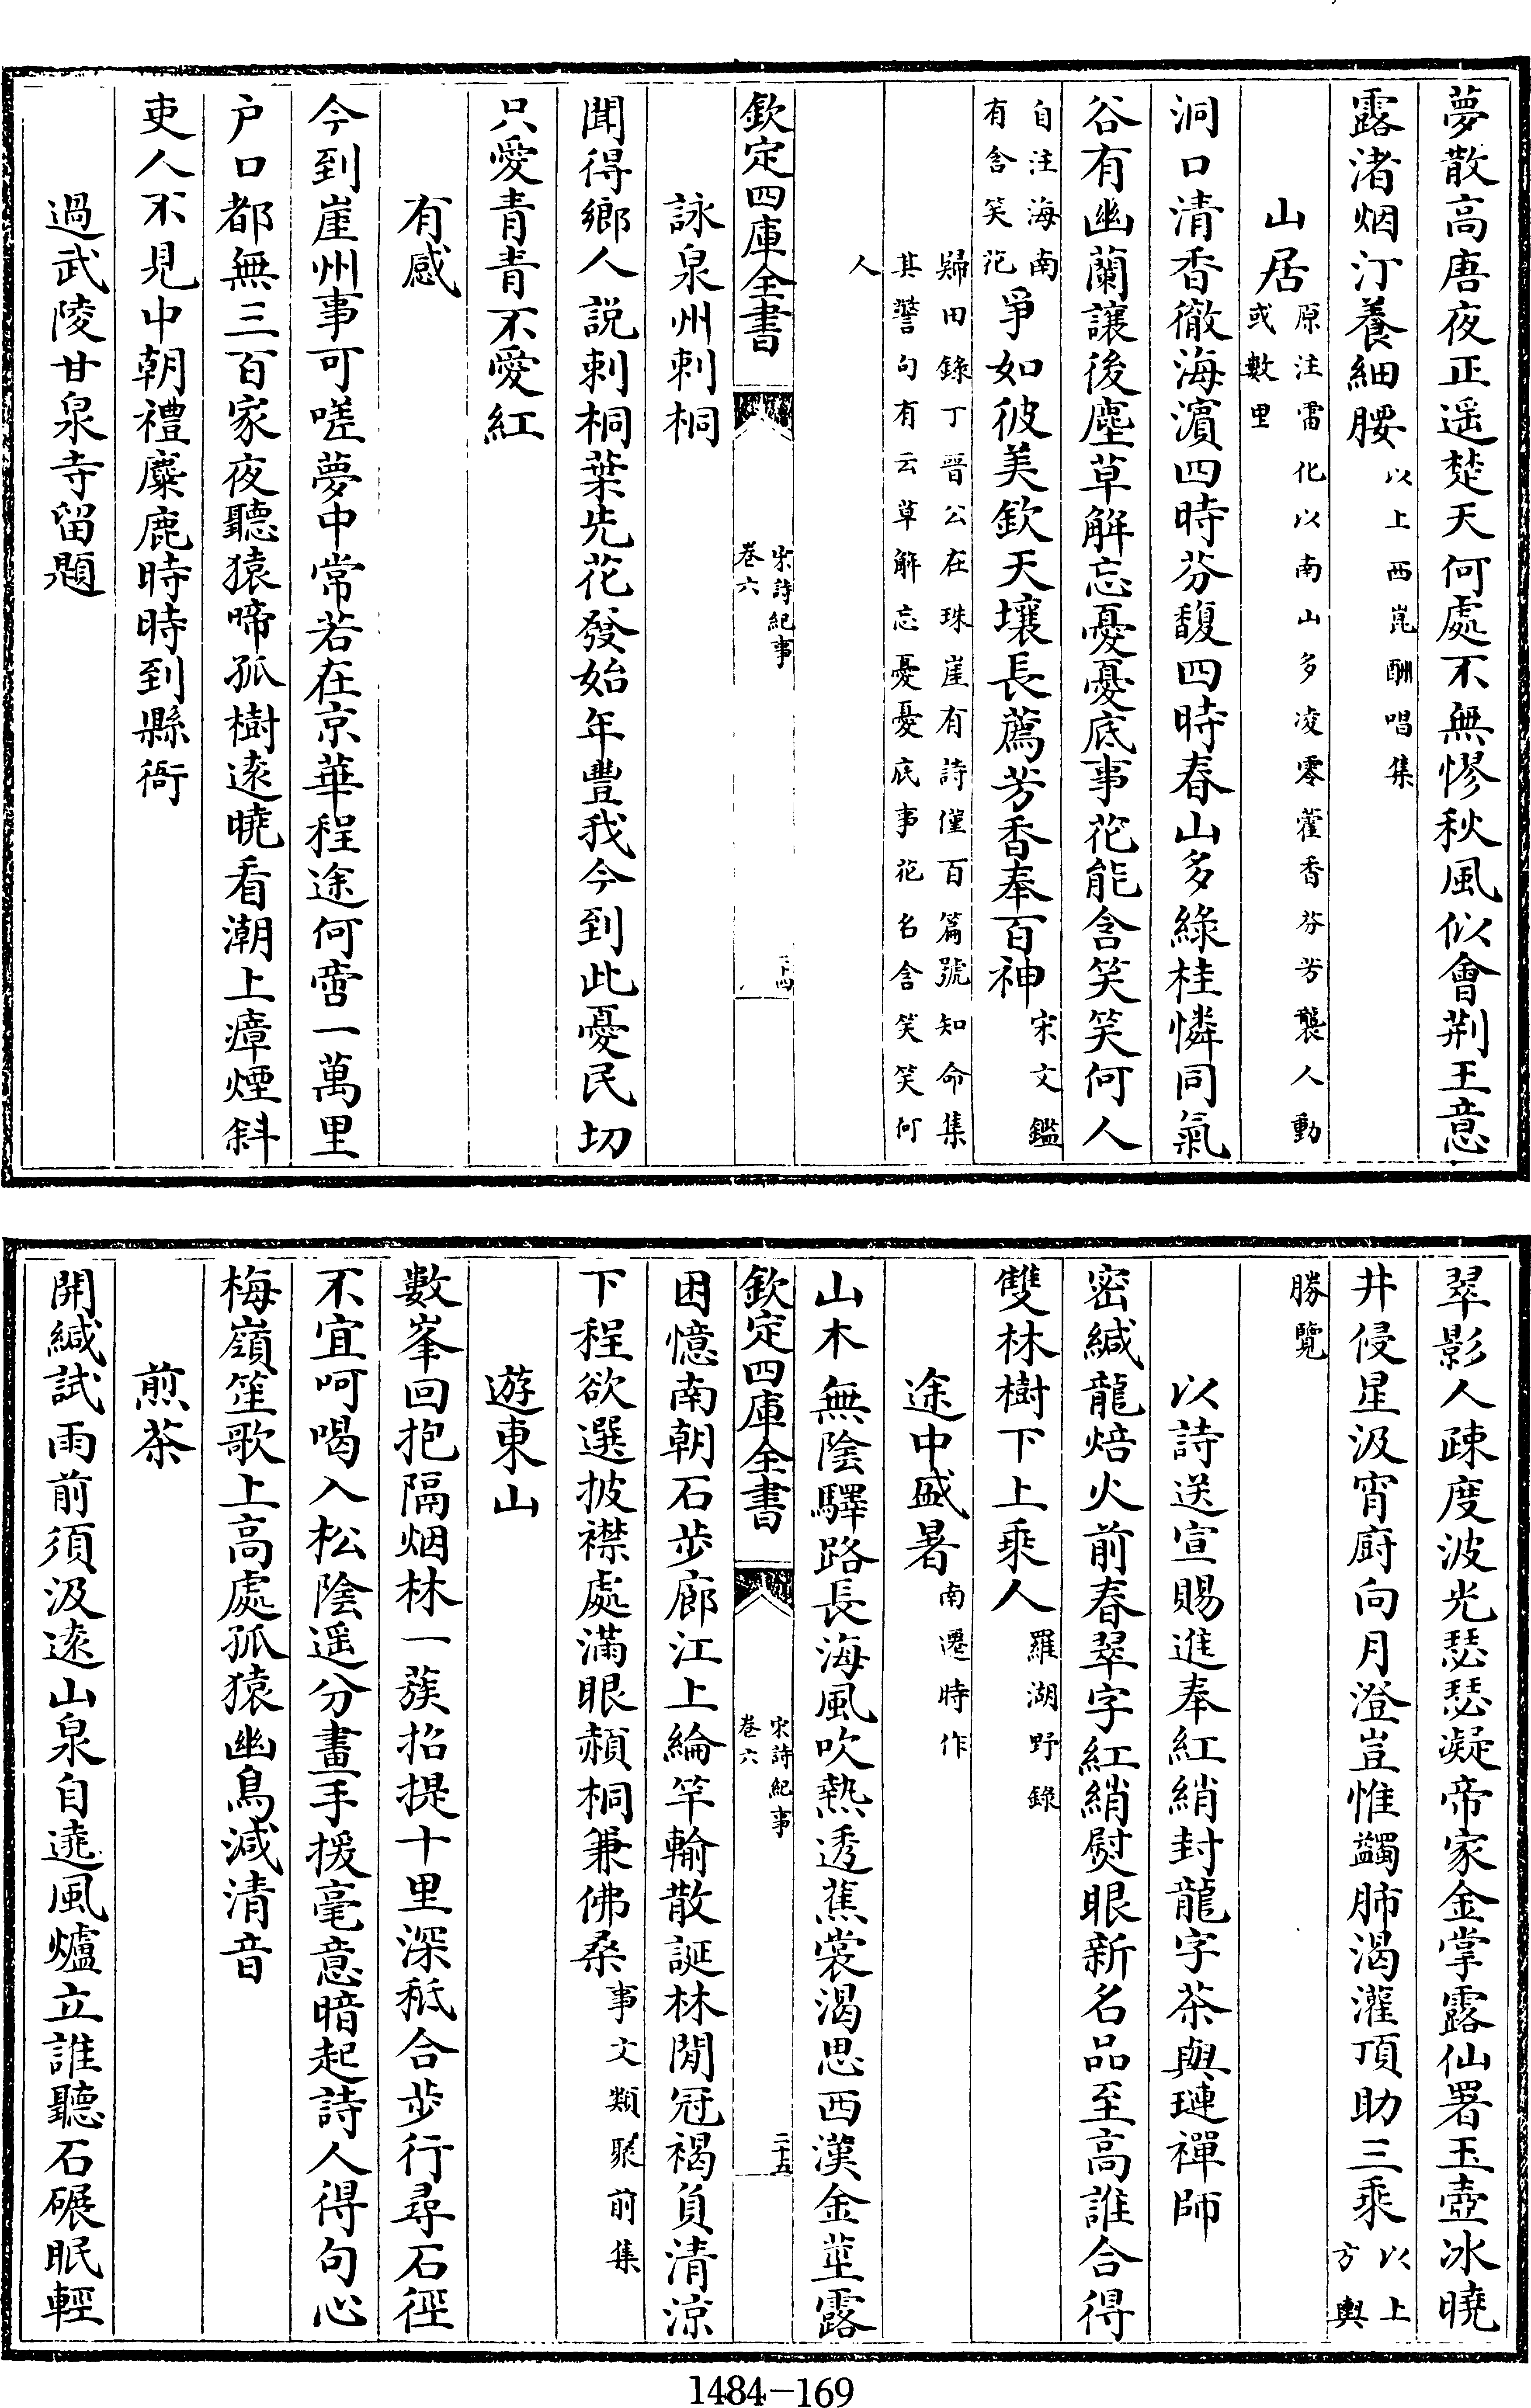 夢散高唐夜正遥楚天何處不無憀秋風似會荆王意
露渚烟汀養細腰以上西崑酬唱集
山居原注雷化以南山多凌零藿香芬芳襲人動
或數里
洞口清香徹海濵四時芬馥四時春山多綠桂憐同氣
谷有幽蘭讓後塵草解忘憂憂底事花能含笑笑何人
自注海南
有含笑花爭如彼美欽天壤長薦芳香奉百神宋文鑑
歸田錄丁晉公在珠崖有詩僅百篇號知命集
其警句有云草解忘憂憂底事花名含笑笑何
人
欽定四庫全書
宋詩紀事
卷六
二十四
詠泉州刺桐
聞得鄉人説刺桐葉先花發始年豐我今到此憂民切
只愛青青不愛紅
有感
今到崖州事可嗟夢中常若在京華程途何啻一萬里
户口都無三百家夜聽猿啼孤樹逺曉看潮上瘴煙斜
吏人不見中朝禮麋鹿時時到縣衙
過武陵甘泉寺留題
翠影人疎度波光瑟瑟凝帝家金掌露仙署玉壺冰曉
井侵星汲宵廚向月澄豈惟蠲肺渴灌頂助三乘以上
方輿
勝覽
以詩送宣賜進奉紅綃封龍字茶與璉禪師
密緘龍焙火前春翠字紅綃熨眼新名品至高誰合得
雙林樹下上乘人羅湖野錄
途中盛暑南遷時作
山木無陰驛路長海風吹熱透蕉裳渴思西漢金莖露
困憶南朝石步廊江上綸竿輸散誕林閒冠褐負清凉
欽定四庫全書
宋詩紀事
卷六
二十五
下程欲選披襟處滿眼頳桐兼佛桑事文類聚前集
遊東山
數峯回抱隔烟林一蔟招提十里深秪合步行尋石徑
不宜呵喝入松陰遥分畫手援毫意暗起詩人得句心
梅嶺笙歌上高處孤猿幽鳥減清音
煎茶
開緘試雨前須汲逺山泉自遶風爐立誰聽石碾眠輕
1484-169